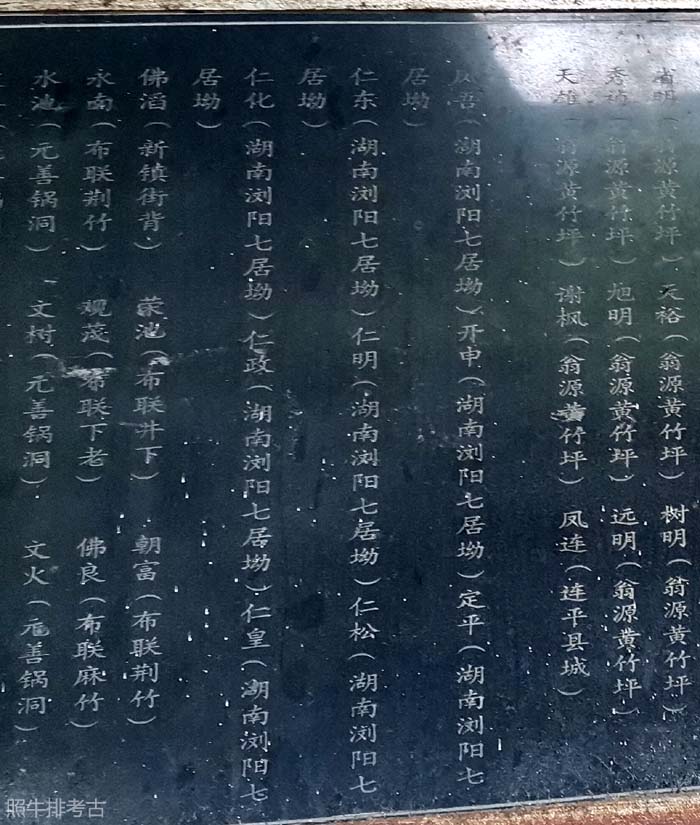 明（源黄竹坪）天裕（翁源黄竹坪）树明（翁源黄竹坪）
秀（翁源黄竹坪）旭明（翁源黄竹坪）远明（翁源黄竹坪）
天雄（翁源黄竹坪）谢枫（翁源黄竹坪）凤连（连平县城）
吾（湖南浏阳七居坳）开申（湖南浏阳七居坳）定平（湖南浏阳七
居坳）
仁东（湖南浏阳七居坳）仁明（湖南浏阳七居坳）仁松（湖南浏阳七
居坳）
仁化（湖南浏阳七居坳）仁政（湖南浏阳七居坳）仁皇（湖南浏阳七
居坳）
佛滔（新镇街背）荣池（布联井下）朝富（布联荆竹）
永南（布联荆竹）观茂（布联下老）佛良（布联麻竹）
水池（元善锅洞）文树（元善锅洞）文火（元善锅洞）
照牛排考古